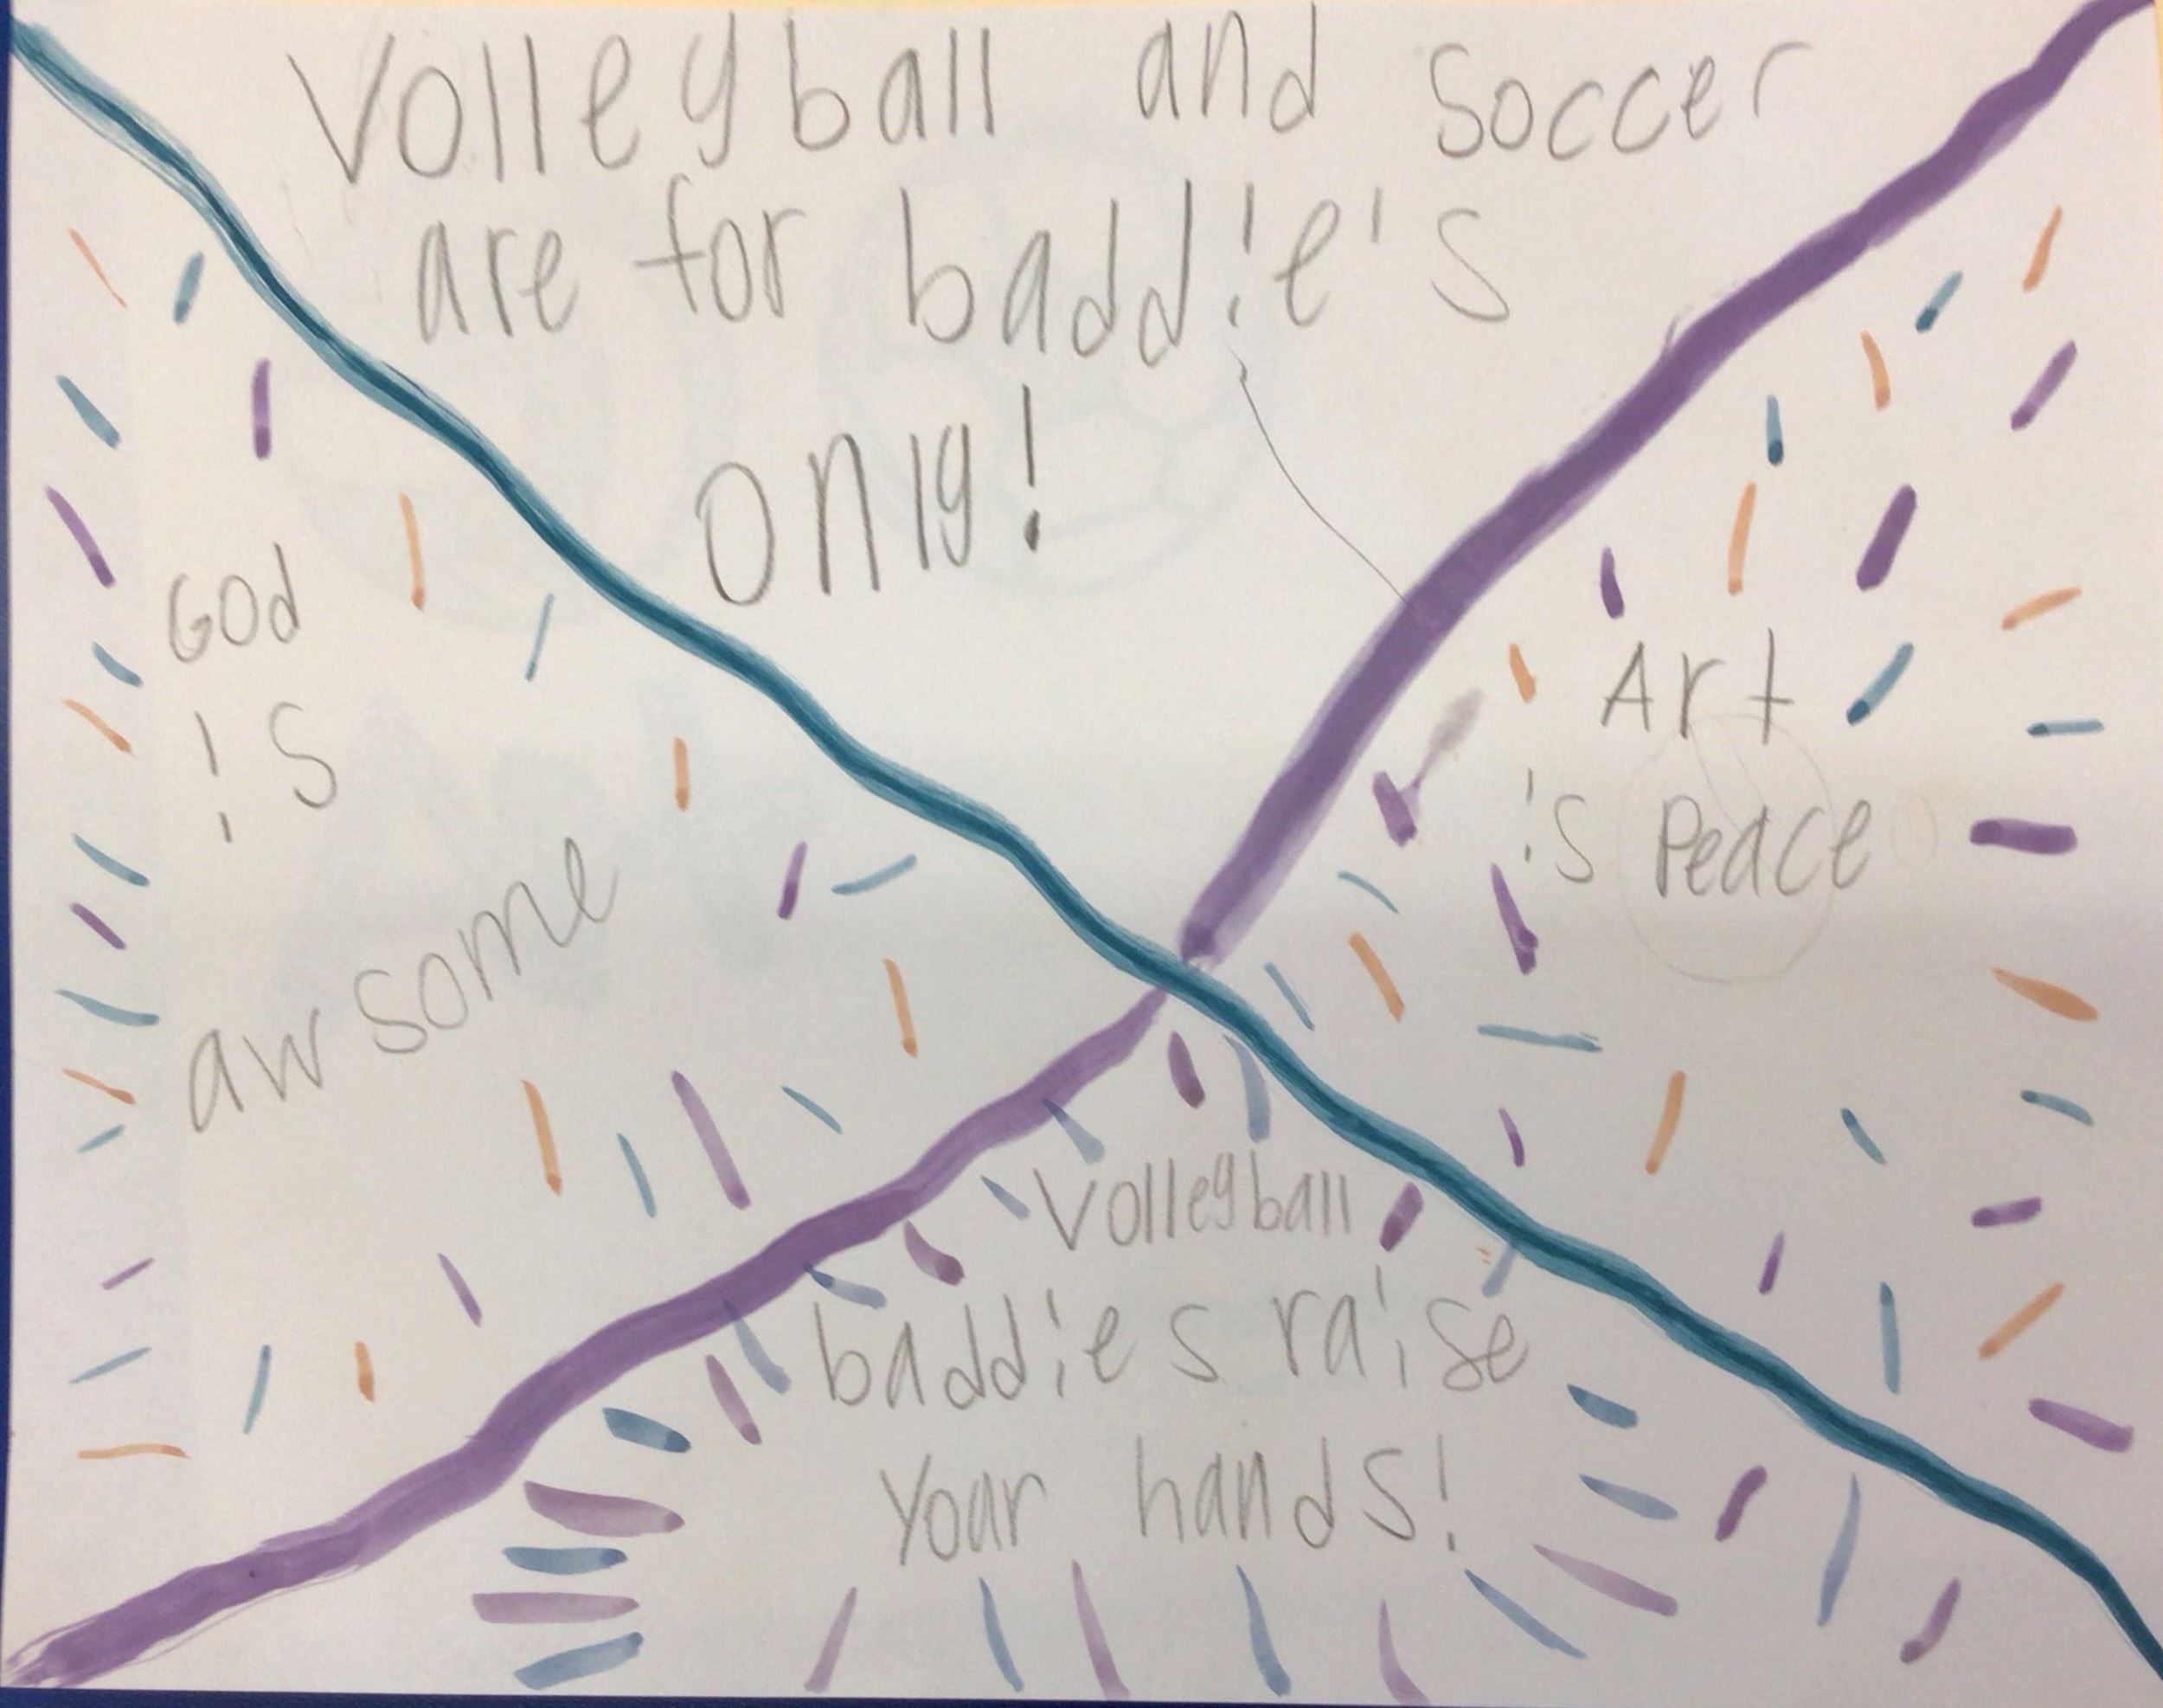 Volleyball and Soccer
are for baddie's
only!
God
is
awsome
Art
is Peace
Volleyball
baddies raise
Your hands!